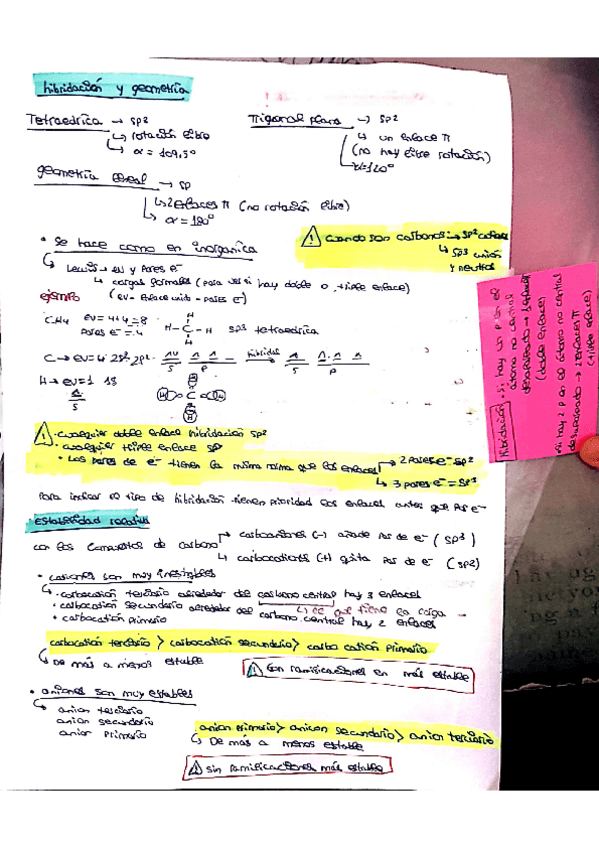 hibridación y geometría
Tetraedrica → sp²
↳ rotación libre
↳ α = 109,5º
Trigonal plana → sp²
↳ un enlace π
(no hay libre rotación)
α=120º
geometría lineal → sp
↳ 2 enlaces π (no rotación libre)
↳ α = 180º
⚠ cuando son carbonos → sp²
↳ sp³ unido
y neutros
• se hace como en inorganica
↳ Lewis → EV y Pares e⁻
↳ cargas formales (para ver si hay doble o triple enlace)
ejemplo (EV - enlace unido - pares e⁻)
CH4 EV = 4+4=8
Pares e⁻ = 4
H
H-C-H sp3 tetraedrica
H
C → EV=4 2S² 2p²
hibrida
S P S P
H → EV=1 1S
S
H C H
H
⚠ • cualquier doble enlace hibridación sp²
• cualquier triple enlace sp
• Los pares de e⁻ tienen la misma norma que los enlaces → 2 pares e⁻ sp²
↳ 3 pares e⁻ = sp³
Para indicar el tipo de hibridación tienen prioridad los enlaces antes que par e⁻
hibridación • si hay un p en el
átomo no central
desapareado → 1 enlace π
(doble enlace)
si hay 2 p en el átomo no central
desapareado → 2 enlaces π
(triple enlace)
estabilidad relativa
con los compuestos de carbono → carboaniones (-) añade par de e⁻ (sp³)
↳ carbocationes (+) quita par de e⁻ (sp2)
• cationes son muy inestables
↳ • carbocation terciario alrededor del carbono central hay 3 enlaces
↳ el que tiene la carga
• carbocation secundario alrededor del carbono central hay 2 enlaces
• carbocation primario
carbocation terciario > carbocation secundario > carbo cation primario
↳ De más a menos estable
⚠ con ramificaciones en más estable
• aniones son muy estables
↳ anion terciario
anion secundario
anion primario
anion primario > anion secundario > anion terciario
↳ De más a menos estable
⚠ sin ramificaciones más estable